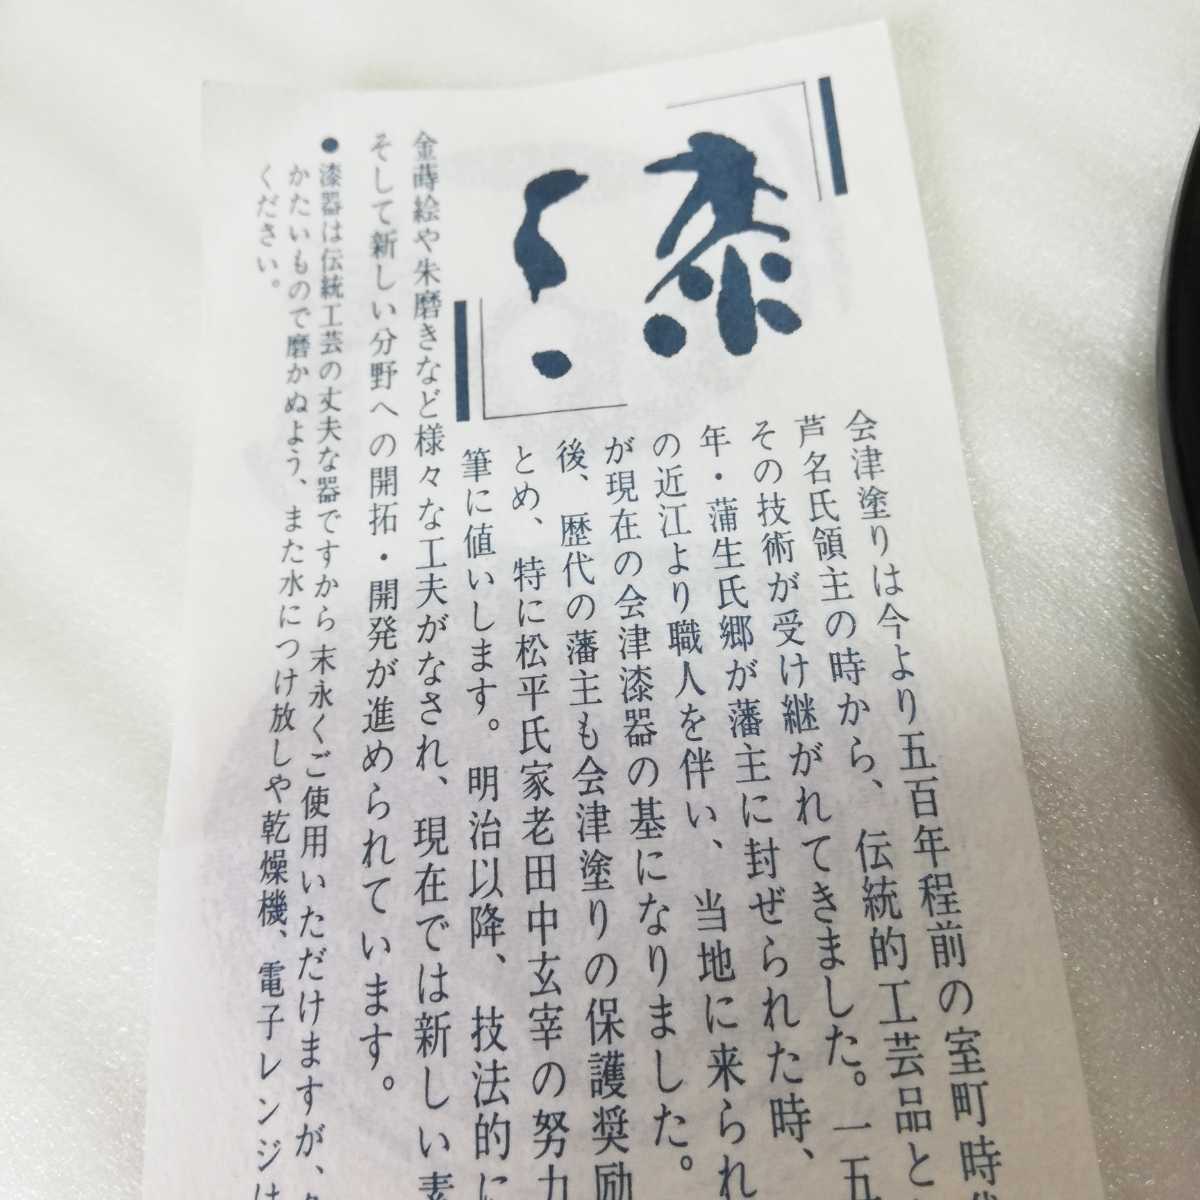 漆
会津塗りは今より五百年程前の室町時代
芦名氏領主の時から、伝統的工芸品と
その技術が受け継がれてきました。一五
年・蒲生氏郷が藩主に封ぜられた時、
の近江より職人を伴い、当地に来られ
が現在の会津漆器の基になりました。
後、歴代の藩主も会津塗りの保護奨励
とめ、特に松平氏家老田中玄宰の努力
筆に値いします。明治以降、技法的に
金蒔絵や朱磨きなど様々な工夫がなされ、現在では新しい素
そして新しい分野への開拓・開発が進められています。
●漆器は伝統工芸の丈夫な器ですから末永くご使用いただけますが、
かたいもので磨かぬよう、また水につけ放しや乾燥機、電子レンジは
ください。